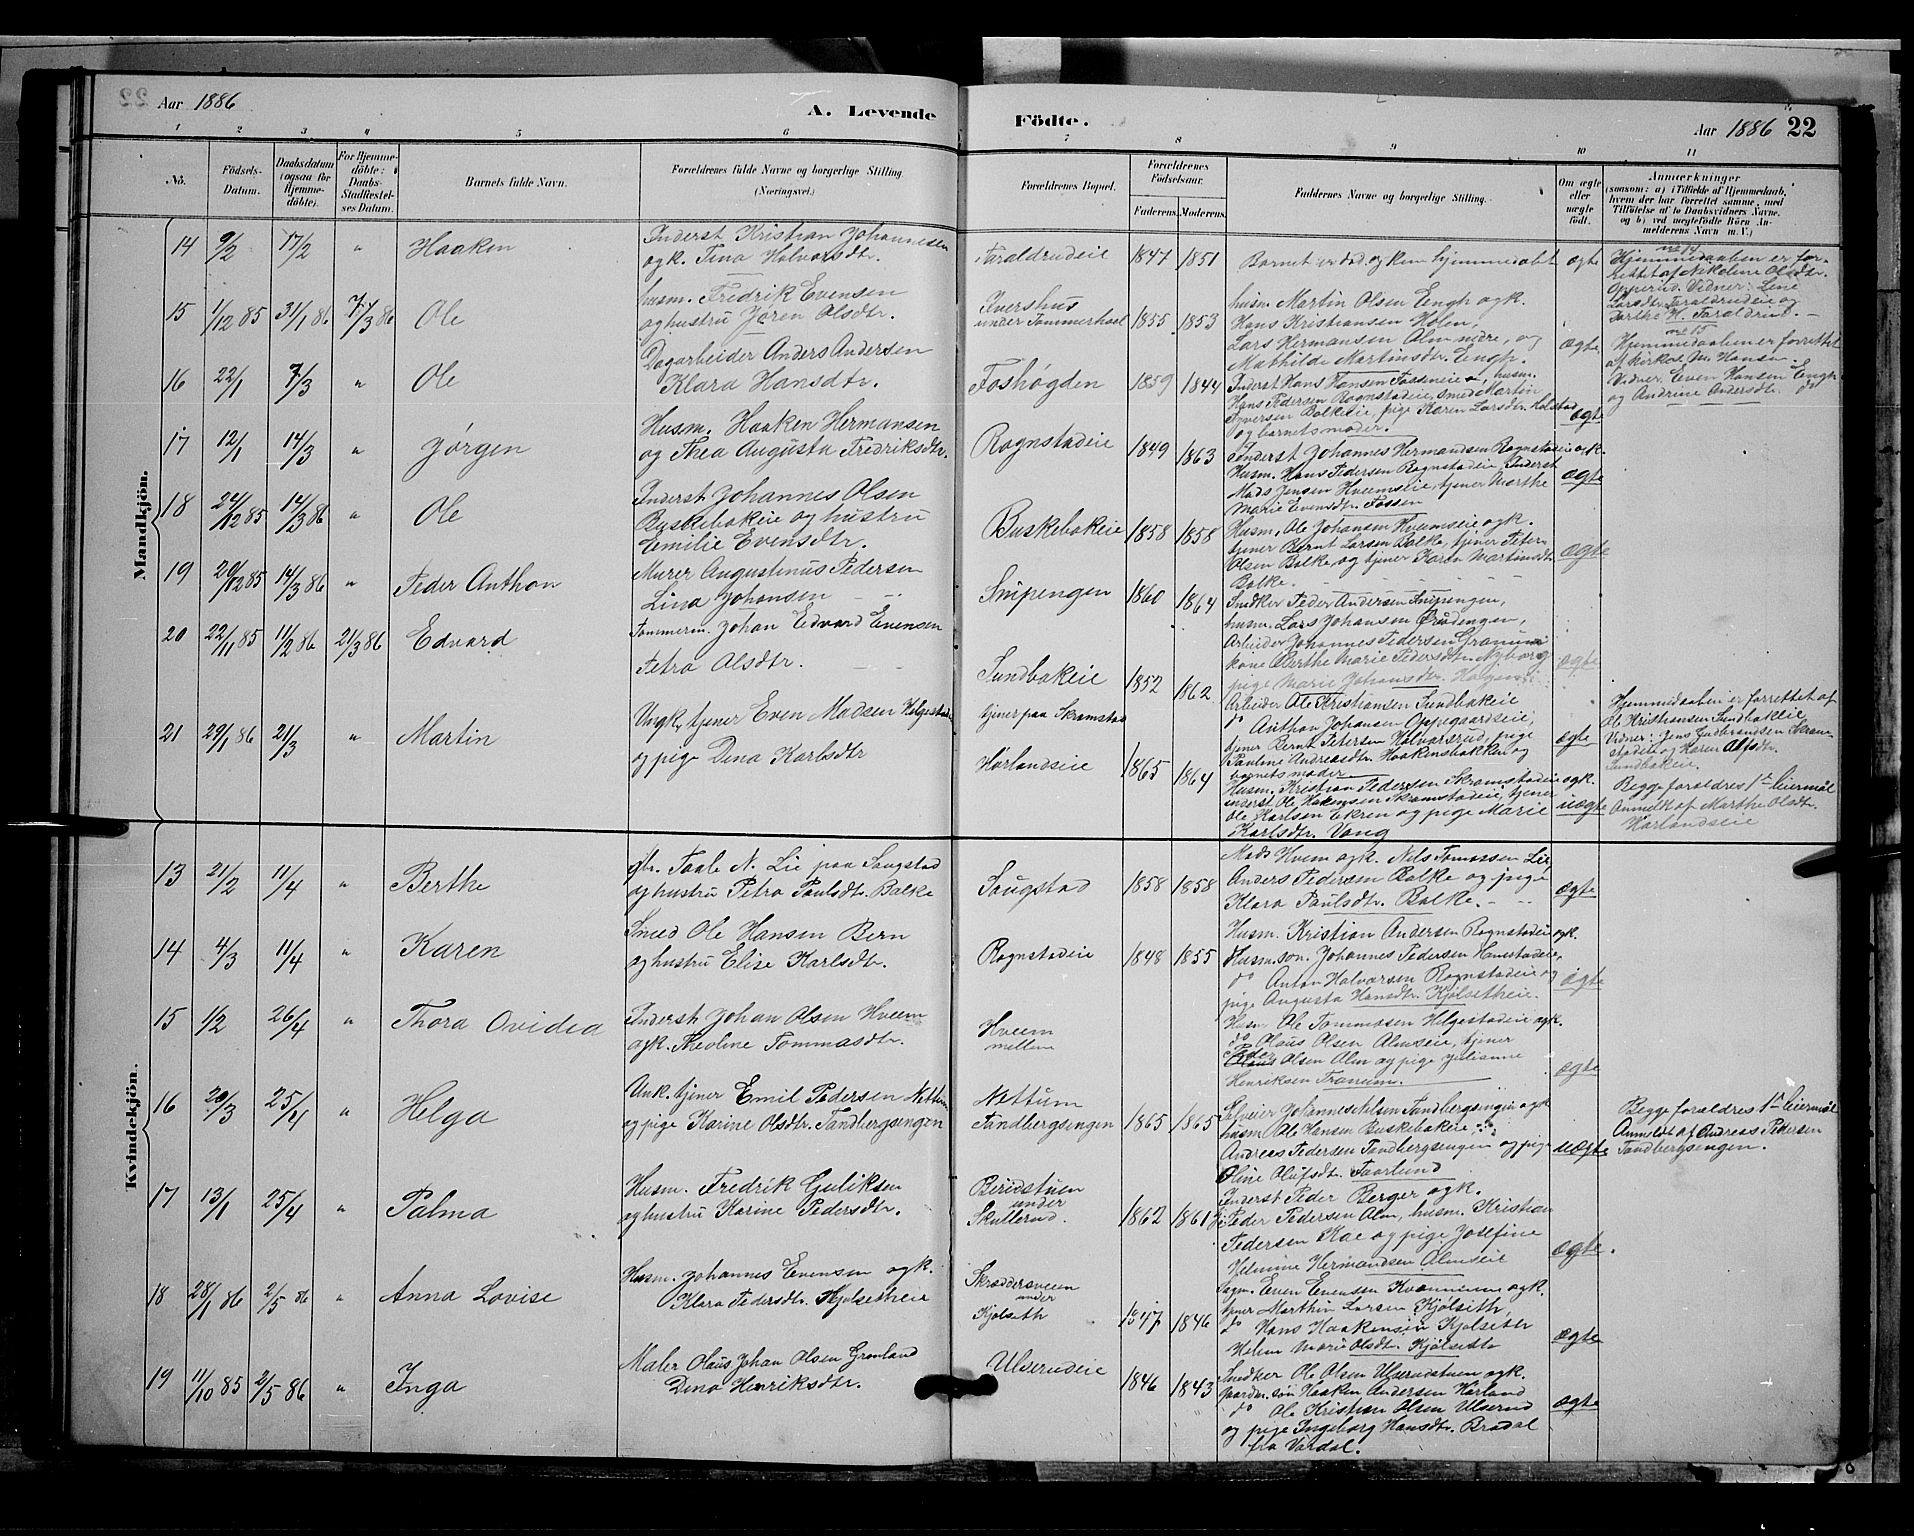 22 Aar 1886
A. Levende Födte.
Aar 1886 22
1 2 3 4 5 6 7 8 9 10 11
No.
Födsels-Datum.
Daabsdatum (ogsaa for Hjemmedöbte).
For Hjemmedöbte: Daabs-Stadfæstelses Datum.
Barnets fulde Navn.
Forældrenes fulde Navne og borgerlige Stilling (Næringsvei.)
Forældrenes Bopæl.
Forældrenes Födselsaar.
Faderens. Moderens.
Faddernes Navne og borgerlige Stilling.
Om ægte eller uægte födt.
Anmærkninger
(saasom: a) Tilfælde af Hjemmedaab, hvem der har forrettet samme, med Tilföielse af to Daabsvidners Navne, og b) ved uægtefödte Börn Anmelderens Navn m. V.)
Mandkjön.
14 9/2 17/2 " Haaken
Inderst Kristian Johannesen
ogk. Tina Halvorsdtr.
Taraldrudeie 1847 1851
Barnet er död og kun hjemmedöbt ægte
no 14
Hjemmedaaben er for-
rettet af Nikoline Olsdtr.
Opperud. Vidner: Lene
Larsdtr. Taraldrudeie og
Marthe H. Taraldrud.
15 1/12 85 31/1 86 7/3 86 Ole
husm. Fredrik Evensen
og hustru Jøren Olsdtr.
Ivershus
under Tømmerhol 1855 1853
husm. Martin Olsen Engh ogk.
Hans Kristiansen Holen,
Lars Hermansen Alm nedre, og
Mathilde Martinsdtr. Engh.
ægte
no 15
Hjemmedaaben er forrettet
af kirkes. M. Hansen.
Vidner: Even Hansen Engh
og Andrine Andersdtr. do
16 22/1 7/3 " Ole
Dagarbeider Anders Andersen
Klara Hansdtr.
Foshøgden 1859 1844
Inderst Hans Hansen Fosseneie, husm.
Hans Pedersen Rognstadeie, smed Martin
Syversen Balkeie, pige Karen Larsdtr. Kolstad
og barnets moder.
ægte
17 12/1 14/3 " Jørgen
Husm. Haaken Hermansen
og Thea Augusta Fredriksdtr.
Rognstadeie 1849 1863
Inderst Johannes Hermandsen Rognstadeie ogk.
Husm. Hans Pedersen Rognstadeie, Inderst
Mads Jensen Hveemseie, tjener Marthe
Marie Evensdtr. Fossen
ægte
18 24/12 85 14/3 86 " Ole
Inderst Johannes Olsen
Buskebakeie og hustru
Emilie Evensdtr.
Buskebakeie 1858 1858
Husm. Ole Johansen Hveemseie ogk.
tjener Bernt Larsen Balke, tjener Peter
Olsen Balke, og tjener Karen Martinsdtr
Balke.
ægte
19 20/12 85 14/3 86 " Peder Anthon
Murer Augustinus Pedersen
Lina Johansen
Snipengen 1860 1864
Snedker Peder Andersen Snipengen,
husm. Lars Johansen Ørudengen,
Arbeider Johannes Pedersen Granum
kone Berthe Marie Pedersdtr. Nyborg
pige Marie Johansdtr. Helgen
ægte
20 22/11 85 11/2 86 21/3 86 Edvard
Tømmerm. Johan Edvard Evensen
Petra Olsdtr.
Sundbakeie 1852 1862
Arbeider Ole Kristiansen Sundbakeie
do Anthon Johansen Oppegaardseie,
tjener Bernt Petersen Halvorsrud, pige
Pauline Andreasdtr. Haakensbakken og
barnets moder
ægte
Hjemmedaaben er forrettet af
Ole Kristiansen Sundbakeie
Vidner: Jens Gudbrandsen Skram-
stadeie og Karen Alfsdtr.
Sundbakeie.
21 29/1 86 21/3 " Martin
Ungk., tjener Even Madsen Helgestad
og pige Dina Karlsdtr
tjener paa Skramstad
Hørlandseie 1865 1864
Husm. Kristian Pedersen Skramstadeie ogk.
inderst Ole Hakensen Skramstadeie, tjener
Ole Karlsen Ekren og pige Marie
Karlsdtr. Vang
uægte
Begge forældres 1st leiermål
Anmeldt af Marthe Olsdtr.
Hørlandseie
Kvindekjön.
13 21/2 11/4 " Berthe
Gbr. Taale N. Lie paa Saugstad
og hustru Petra Paulsdtr. Balke
Saugstad 1858 1858
Mads Hveem ogk. Nels Tomassen Lie
Anders Pedersen Balke og pige
Klara Paulsdtr. Balke.
ægte
14 4/3 11/4 " Karen
Smed Ole Hansen Bern
og hustru Elise Karlsdtr.
Rognstadeie 1848 1855
Husm. Kristian Andersen Rognstadeie ogk.
Husmson. Johannes Pedersen Hanestadeie,
do Anton Halvorsen Rognstadeie og
pige Augusta Hansdtr. Kjølsetheie.
ægte
15 1/2 26/4 " Thora Ovidea
Inderst Johan Olsen Hveem
ogk. Theoline Tommasdtr.
Hveem
mellem
Husm Ole Tommassen Helgestadeie ogk.
do Olaus Olsen Almseie, tjener
Peder Olsen Alm og pige Julianne
Henriksen Tranum.
ægte
16 20/3 25/4 " Helga
Unk. tjener Emil Pedersen Nettum
og pige Karine Olsdtr. Sandbergsengen
Nettum
Sandbergsengen 1865 1865
Selveier Johannes Nilsen Sandbergsengen ogk
husm Ole Hansen Buskebakeie
Andreas Pedersen Sandbergsengen og pige
Oline Olufsdtr. Faarlund
uægte
Begge forældres 1st leiermål
Anmeldt af Andreas Pedersen
Sandbergsengen.
17 13/1 25/4 " Palma
Husm. Fredrik Guliksen
og hustru Karine Pedersdtr.
Beridstuen
under
Skullerud. 1862 1861
Inderst Peder Berger ogk.
Peder Pedersen Alm, husm. Kristian
Pedersen Kae og pige Josefine
Helmine Hermandsen Almseie
ægte.
18 28/1 86 2/5 86 " Anna Lovise
Husm. Johannes Evensen ogk.
Klara Pedersdtr. Kjølsetheie
Skræddersveen
under
Kjølseth 1847 1846
Sagm. Even Evensen Kvænnum ogk.
tjener Marthin Larsen Kjølseth,
do Hans Haakensen Kjølseth
Helene Marie Olsdtr. Kjølseth
ægte
19 11/10 85 2/5 86 " Inga
Maler Olaus Johan Olsen Grønland
Dina Henriksdtr.
Ulserudeie 1846 1843
Snedker Ole Olsen Ulserudstuen ogk.
gaardm. søn Haaken Andersen Hørland
do Ole Kristian Olsen Ulserud
og pige Ingeborg Hansdtr. Bradal
fra Vardal.
ægte